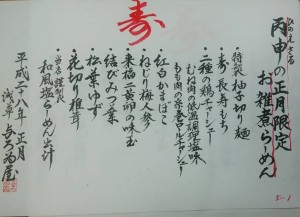 寿
ひのえさる
丙申の正月限定
お雑煮らーめん
特製 柚子切り麺
・寿 長寿もち
・二種の鶏チャーシュー
むね肉の低温調理塩味
もも肉の糸巻ロールチャーシュー
・紅白かまぼこ
・ねじり梅人参
・来福二黄卵の味玉
・結びみつ葉
・松葉ゆず
・花切り椎茸
・当店謹製
和風塩らーめん出汁
平成二十八年 正月
浅草 与ろゐ屋